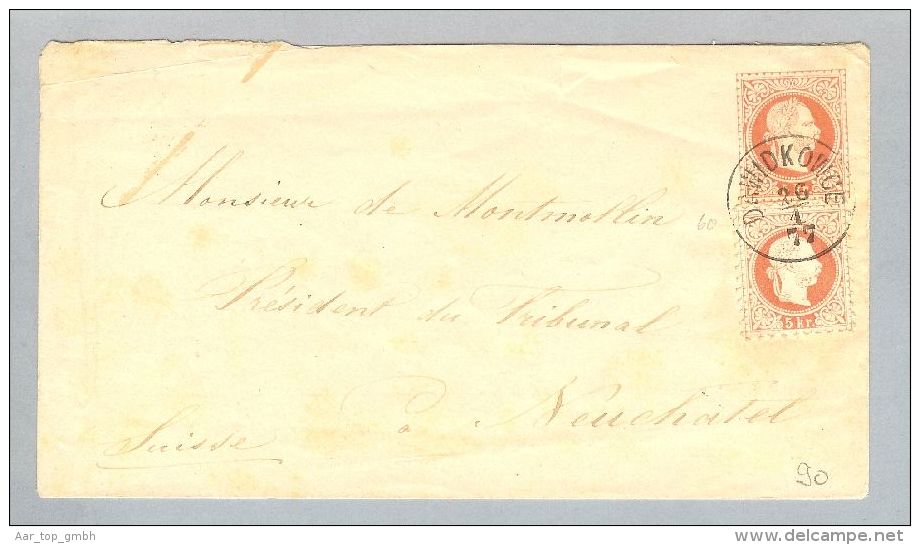 DAWIDKOWICE
26
1
77
Monsieur de Montmollin
60
Président du Tribunal
5 kr
à Neuchâtel
Suisse
90
Aar_top_gmbh
delcampe.net